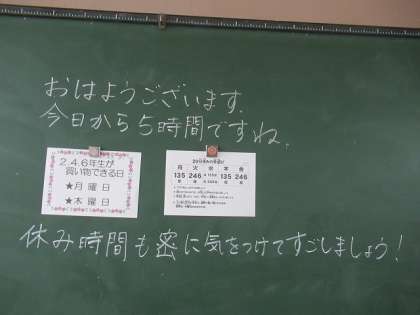 おはようございます。
今日から5時間ですね。
2.4.6年生が
買い物できる日
★月 曜 日
★木 曜 日
月 火 水 木 金
135 246 135 246
休み時間も密に気をつけてすごしましょう!